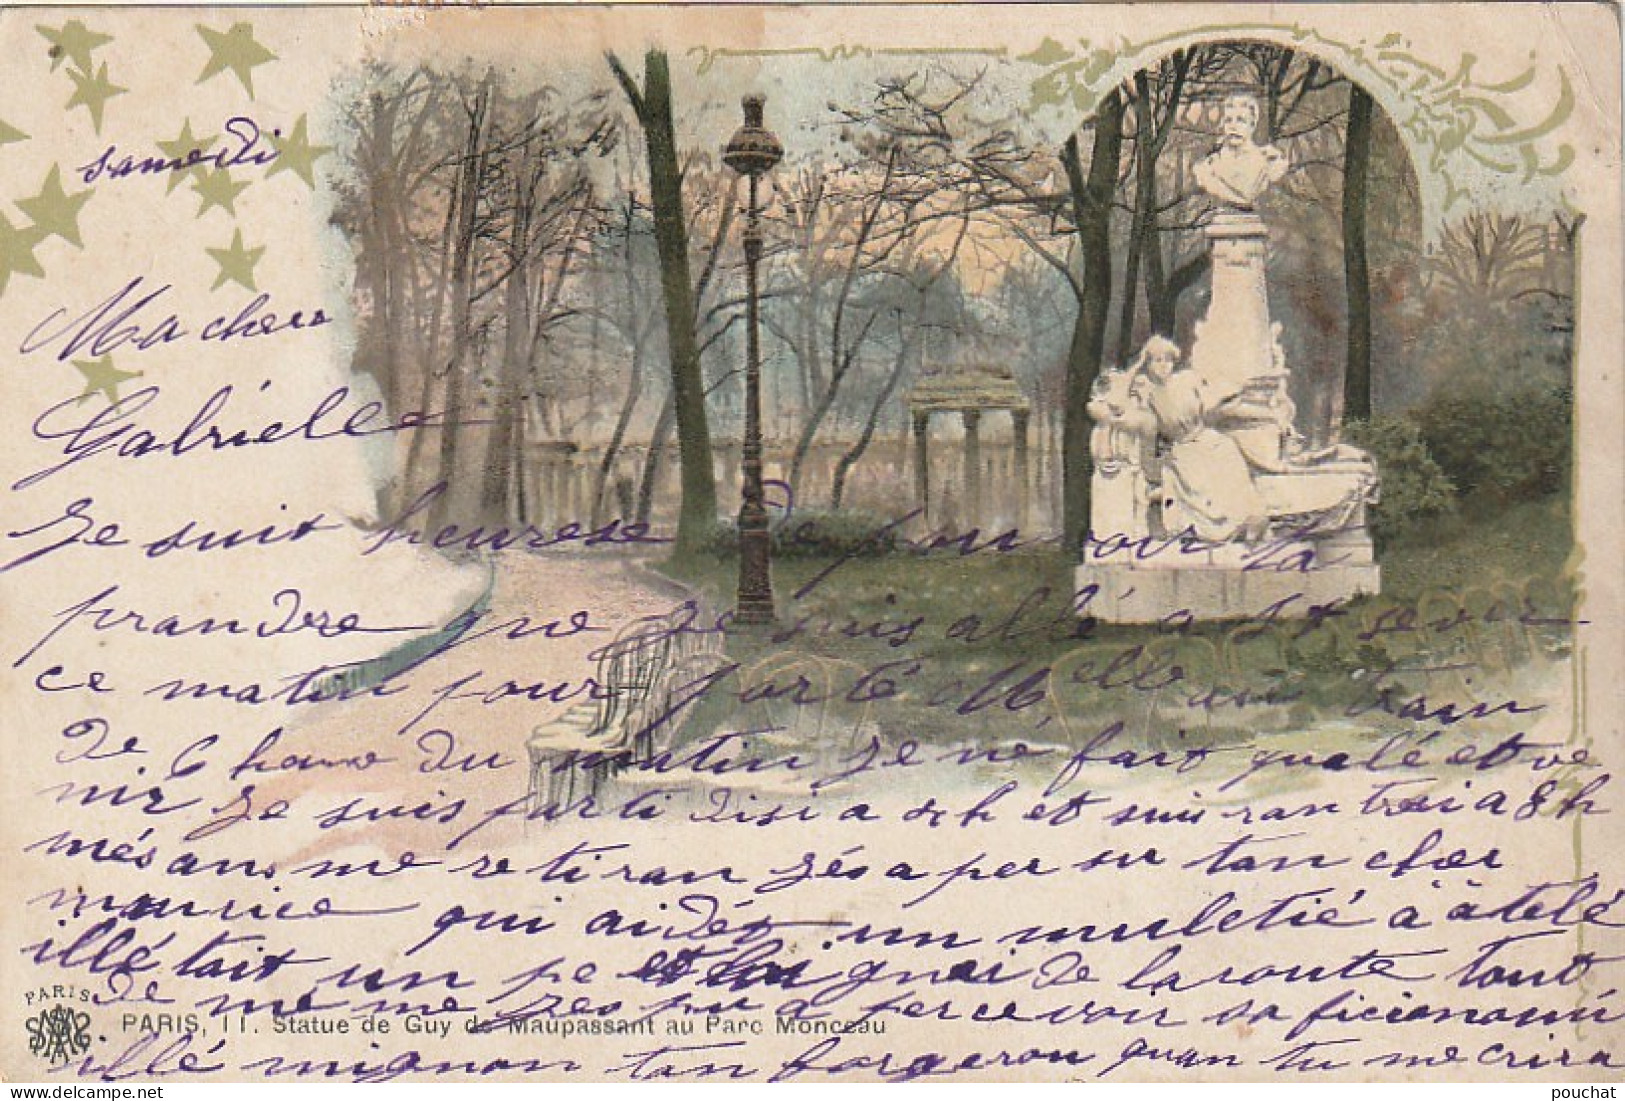 samedi
Ma chere
Gabrielle
Je suit heurese de pouvoir ta
prandre que Je suis allé a St sever
ce matin pour porté Melle au train
de 6 hare du matin Je ne fait qualé et ve
nir Je suis parti disi a 4h et suis rantrai a 8h
més ans me retiran Jés aper su tan cher
maurice qui aidét un muletié a atelé
illé tait un pe loignai de la route tout
de meme Jes pu a percevoir sa ficionomi
illé mignon tan forgeron quan tu me crira
PARIS
PARIS, 11. Statue de Guy de Maupassant au Parc Monceau
pouchat